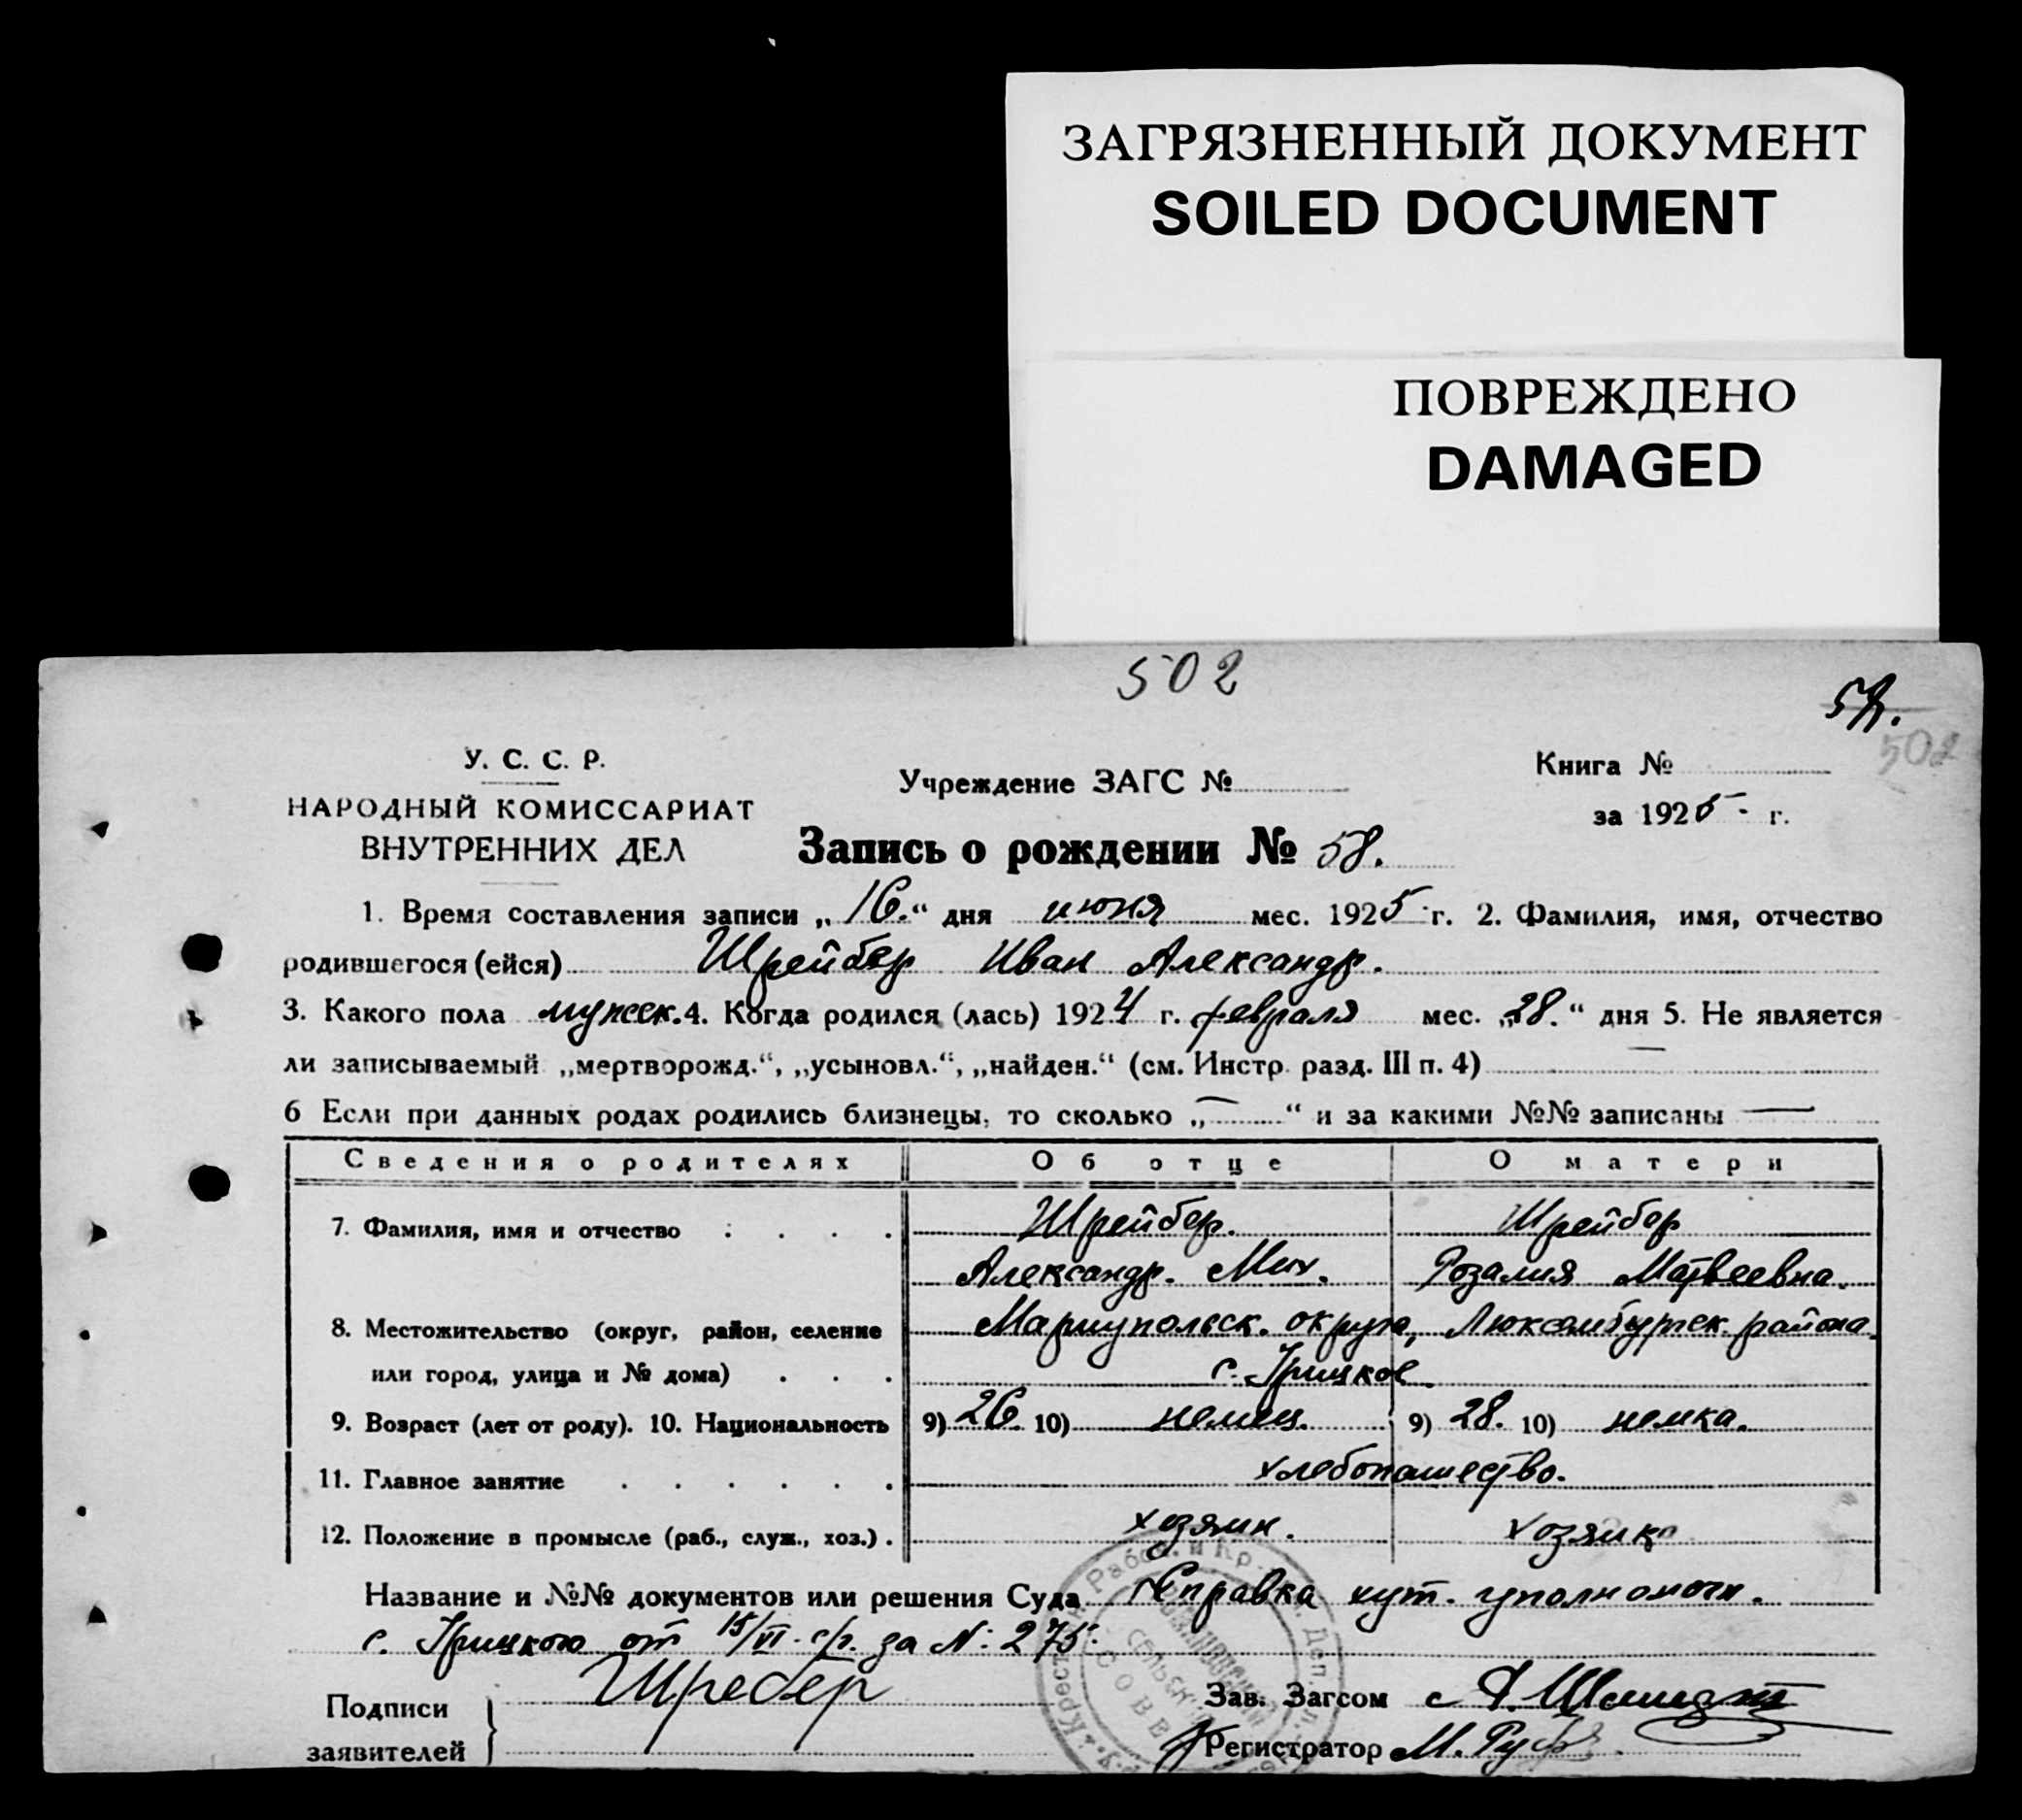 ЗАГРЯЗНЕННЫЙ ДОКУМЕНТ
SOILED DOCUMENT
ПОВРЕЖДЕНО
DAMAGED
502
502
У. С. С. Р.
НАРОДНЫЙ КОМИССАРИАТ
ВНУТРЕННИХ ДЕЛ
Учреждение ЗАГС №
Книга №
за 1925 г.
Запись о рождении № 58.
1. Время составления записи „16.“ дня июня мес. 1925 г. 2. Фамилия, имя, отчество
родившегося (ейся) Шрейбер Иван Александр.
3. Какого пола мужск. 4. Когда родился (лась) 1924 г. февраля мес. „28.“ дня 5. Не является
ли записываемый „мертворожд.“, „усыновл.“, „найден.“ (см. Инстр. разд. III п. 4) —
6 Если при данных родах родились близнецы, то сколько „—“ и за какими №№ записаны —
Сведения о родителях Об отце О матери
7. Фамилия, имя и отчество Шрейбер. Шрейбер
Александр. Мих. Розалия Матвеевна.
8. Местожительство (округ, район, селение Мариупольск. округа, Люксембургск. района
или город, улица и № дома) с. Грицкое.
9. Возраст (лет от роду). 10. Национальность 9) 26. 10) немец. 9) 28. 10) немка.
11. Главное занятие хлебопашество.
12. Положение в промысле (раб., служ., хоз.) . хозяин. хозяйка
Название и №№ документов или решения Суда Справка хут. уполномоч.
с. Грицкого от 15/VI с/г. за №: 275.
Подписи Шребер
заявителей
Зав. Загсом
Регистратор М.
СЕЛЬСКИЙ
СОВЕТ